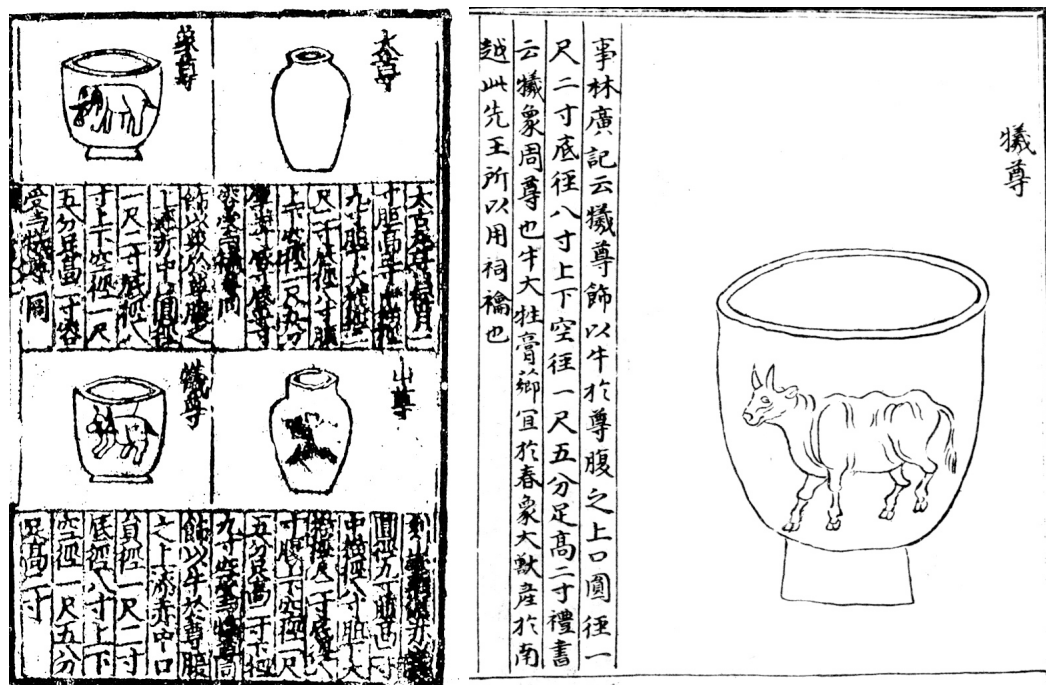 太尊
寸脰高三寸中橫徑
九寸脰下大橫徑一
尺二寸底徑八寸腹
上下空徑一尺五分
象尊
飾以象於尊腹之
上漆赤中口圓徑
一尺二寸底徑八
寸上下空徑一尺
五分足高二寸容
受與犧尊同
山尊
圓徑九寸脰高三寸
中橫徑八寸脰下大
橫徑尺二寸底徑八
寸腹上下空徑一尺
五分足高二寸下徑
九寸
犧尊
飾以牛於尊腹
之上漆赤中口
員徑一尺二寸
底徑八寸上下
空徑一尺五分
足高二寸
犧尊
事林廣記云犧尊飾以牛於尊腹之上口圓徑一
尺二寸底徑八寸上下空徑一尺五分足高二寸禮書
云犧象周尊也牛大牲膏薌宜於春象大獸產於南
越此先王所以用祠禴也